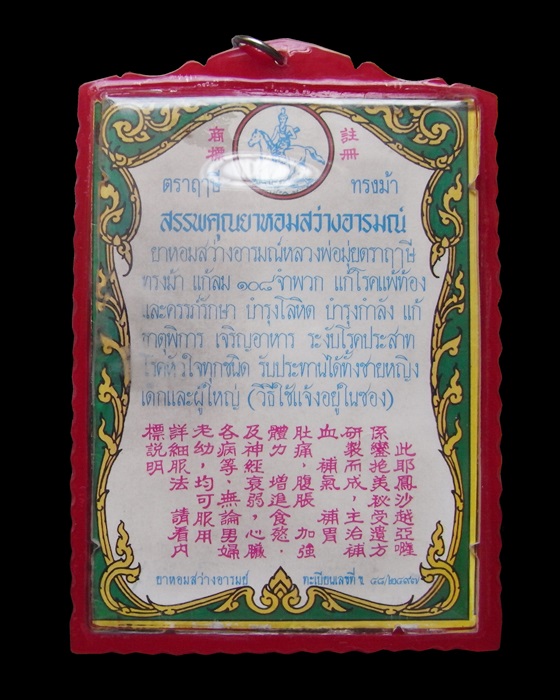 商標
註冊
ตราฤๅษี ทรงม้า
สรรพคุณยาหอมสว่างอารมณ์
ยาหอมสว่างอารมณ์หลวงพ่อมุ่ยตราฤๅษี
ทรงม้า แก้ลม ๑๐๘ จำพวก แก้โรคแพ้ท้อง
และครรภ์รักษา บำรุงโลหิต บำรุงกำลัง แก้
ธาตุพิการ เจริญอาหาร ระงับโรคประสาท
โรคหัวใจทุกชนิด รับประทานได้ทั้งชายหญิง
เด็กและผู้ใหญ่ (วิธีใช้แจ้งอยู่ในซอง)
此耶鳳沙越亞囉
係鑾抱美秘受遺方
研製而成,主治補
血 補氣 補胃
肚痛,腹脹 加強
體力 增進食慾.
及神經衰弱,心臟
各病等.無論男婦
老幼,均可服用
詳細服法 請看內
標說明
ยาหอมสว่างอารมย์ ทะเบียนเลขที่ ข. ๔๘/๒๔๙๗